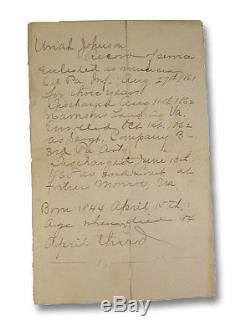 Uriah Johnson
record of service
Enlisted as musician
Pa. Inf. Aug 27th 1861
for three years
Discharged Aug 11th 1862
Harrison's Landing Va.
Enrolled Oct 16, 1862
as Sergt, Company B-
3rd Pa. Art.
Discharged June 10th
1865 as 2nd Lieut at
Fortress Monroe, Va
Born 1844 April 15th:
age when died 54
April third